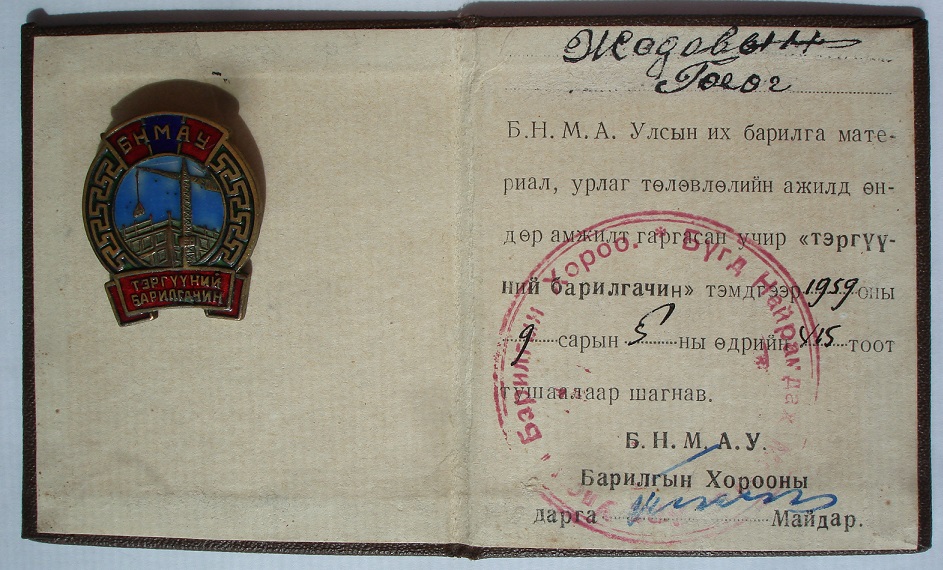 БНМАУ
ТЭРГҮҮНИЙ
БАРИЛГАЧИН
Жадовын
Гоог
Б.Н.М.А. Улсын их барилга мате-
риал, урлаг төлөвлөлийн ажилд өн-
дөр амжилт гаргасан учир «тэргүү-
ний барилгачин» тэмдгээр 1959 оны
9 сарын 5 ны өдрийн 415 тоот
тушаалаар шагнав.
Б.Н.М.А.У.
Барилгын Хорооны
дарга Майдар.
Барилгын Хороо. * Бүгд Найрамдах